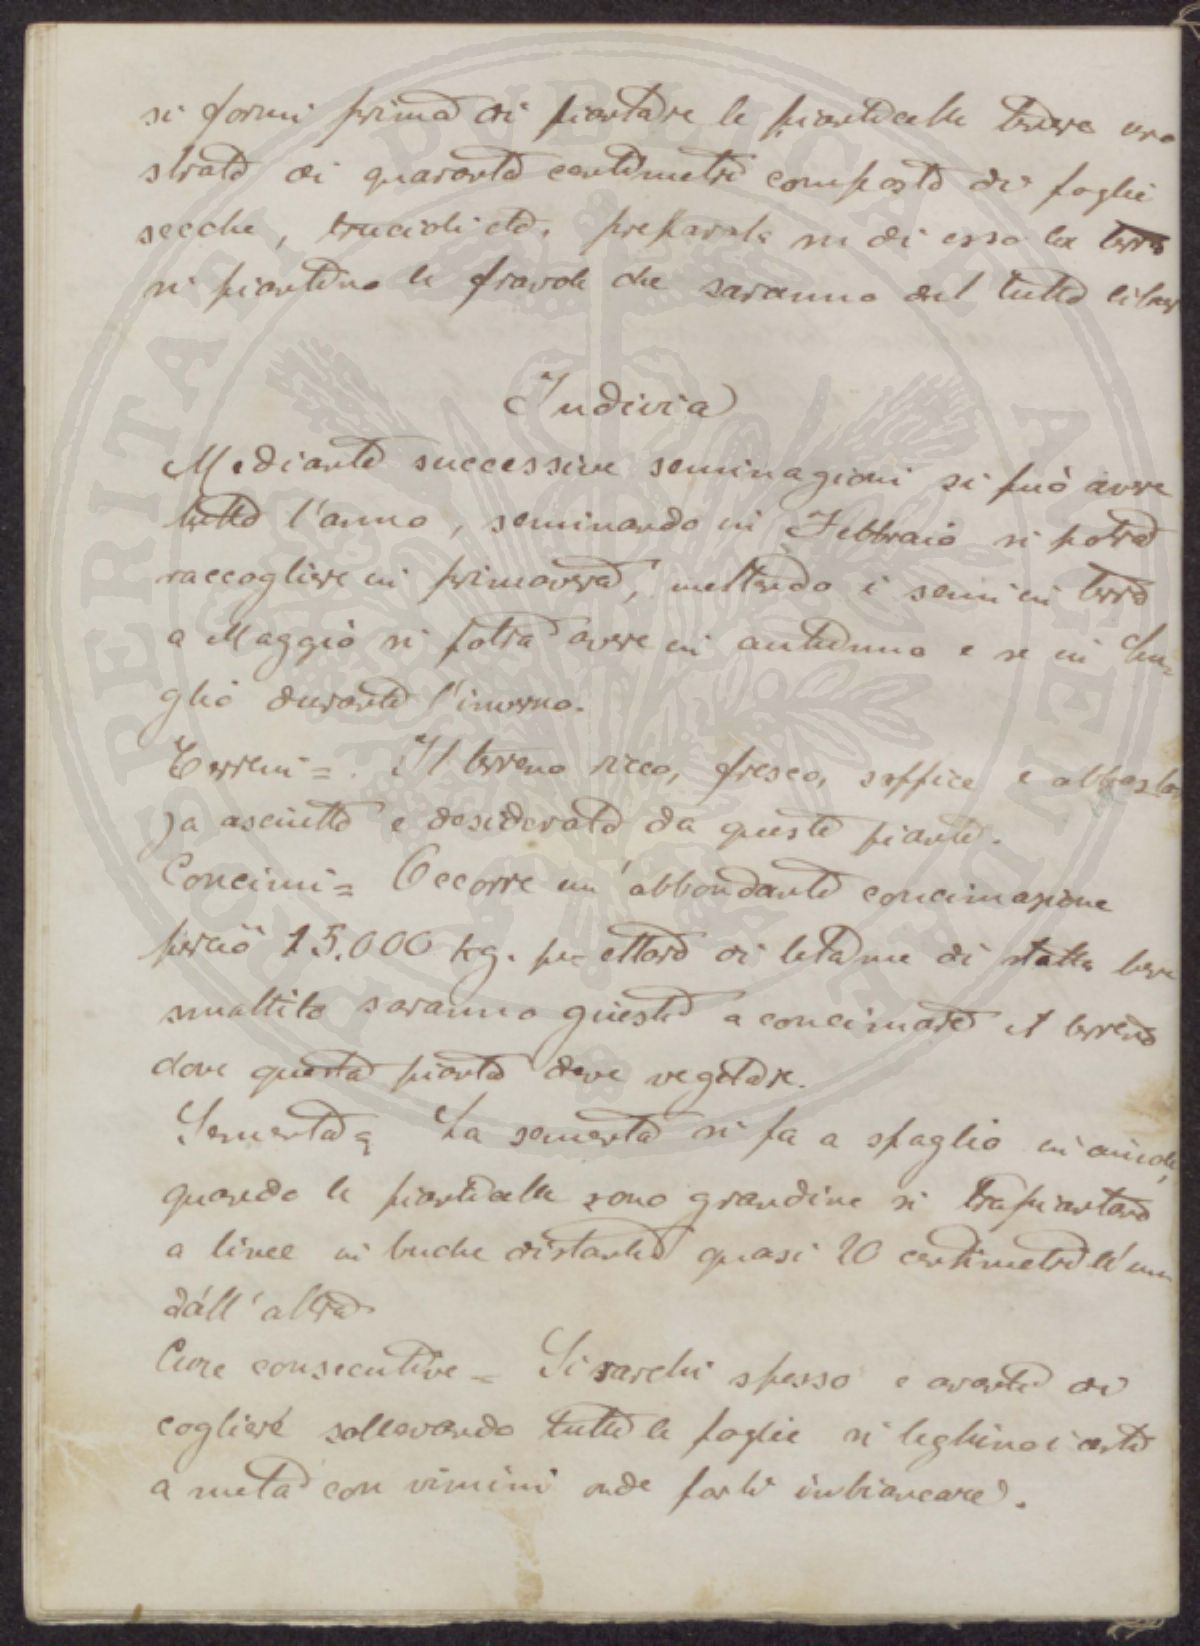 si formi prima di piantare le pianticelle tenere uno
strato di quaranta centimetri composto di foglie
secche, trucioli etc. preparata su di esso la terra
si piantino le fravole che saranno del tutto libere
Indivia
Mediante successive seminagioni si può avere
tutto l'anno, seminando in Febbraio si potrà
raccogliere in primavera, mettendo i semi in terra
a Maggio si potrà avere in autunno e se in Lu=
glio durante l'inverno.
Terreni = . Il terreno ricco, fresco, soffice e abbastan
za asciutto è desiderato da queste piante.
Concimi = Occorre un'abbondante concimazione
perciò 15.000 kg. per ettaro di letame di stalla bene
smaltito saranno giusti a concimare il terreno
dove questa pianta deve vegetare.
Sementa = La sementa si fa a spaglio in aiuole,
quando le pianticelle sono grandine si trapiantano
a linee in buche distanti quasi 20 centimetri l'una
dall'altra
Cure consecutive = Si sarchi spesso e avanti di
cogliere sollevando tutte le foglie si leghino i cesti
a metà con vimini onde farli imbiancare.
PROSPERITATI PVBLICAE AVGENDAE